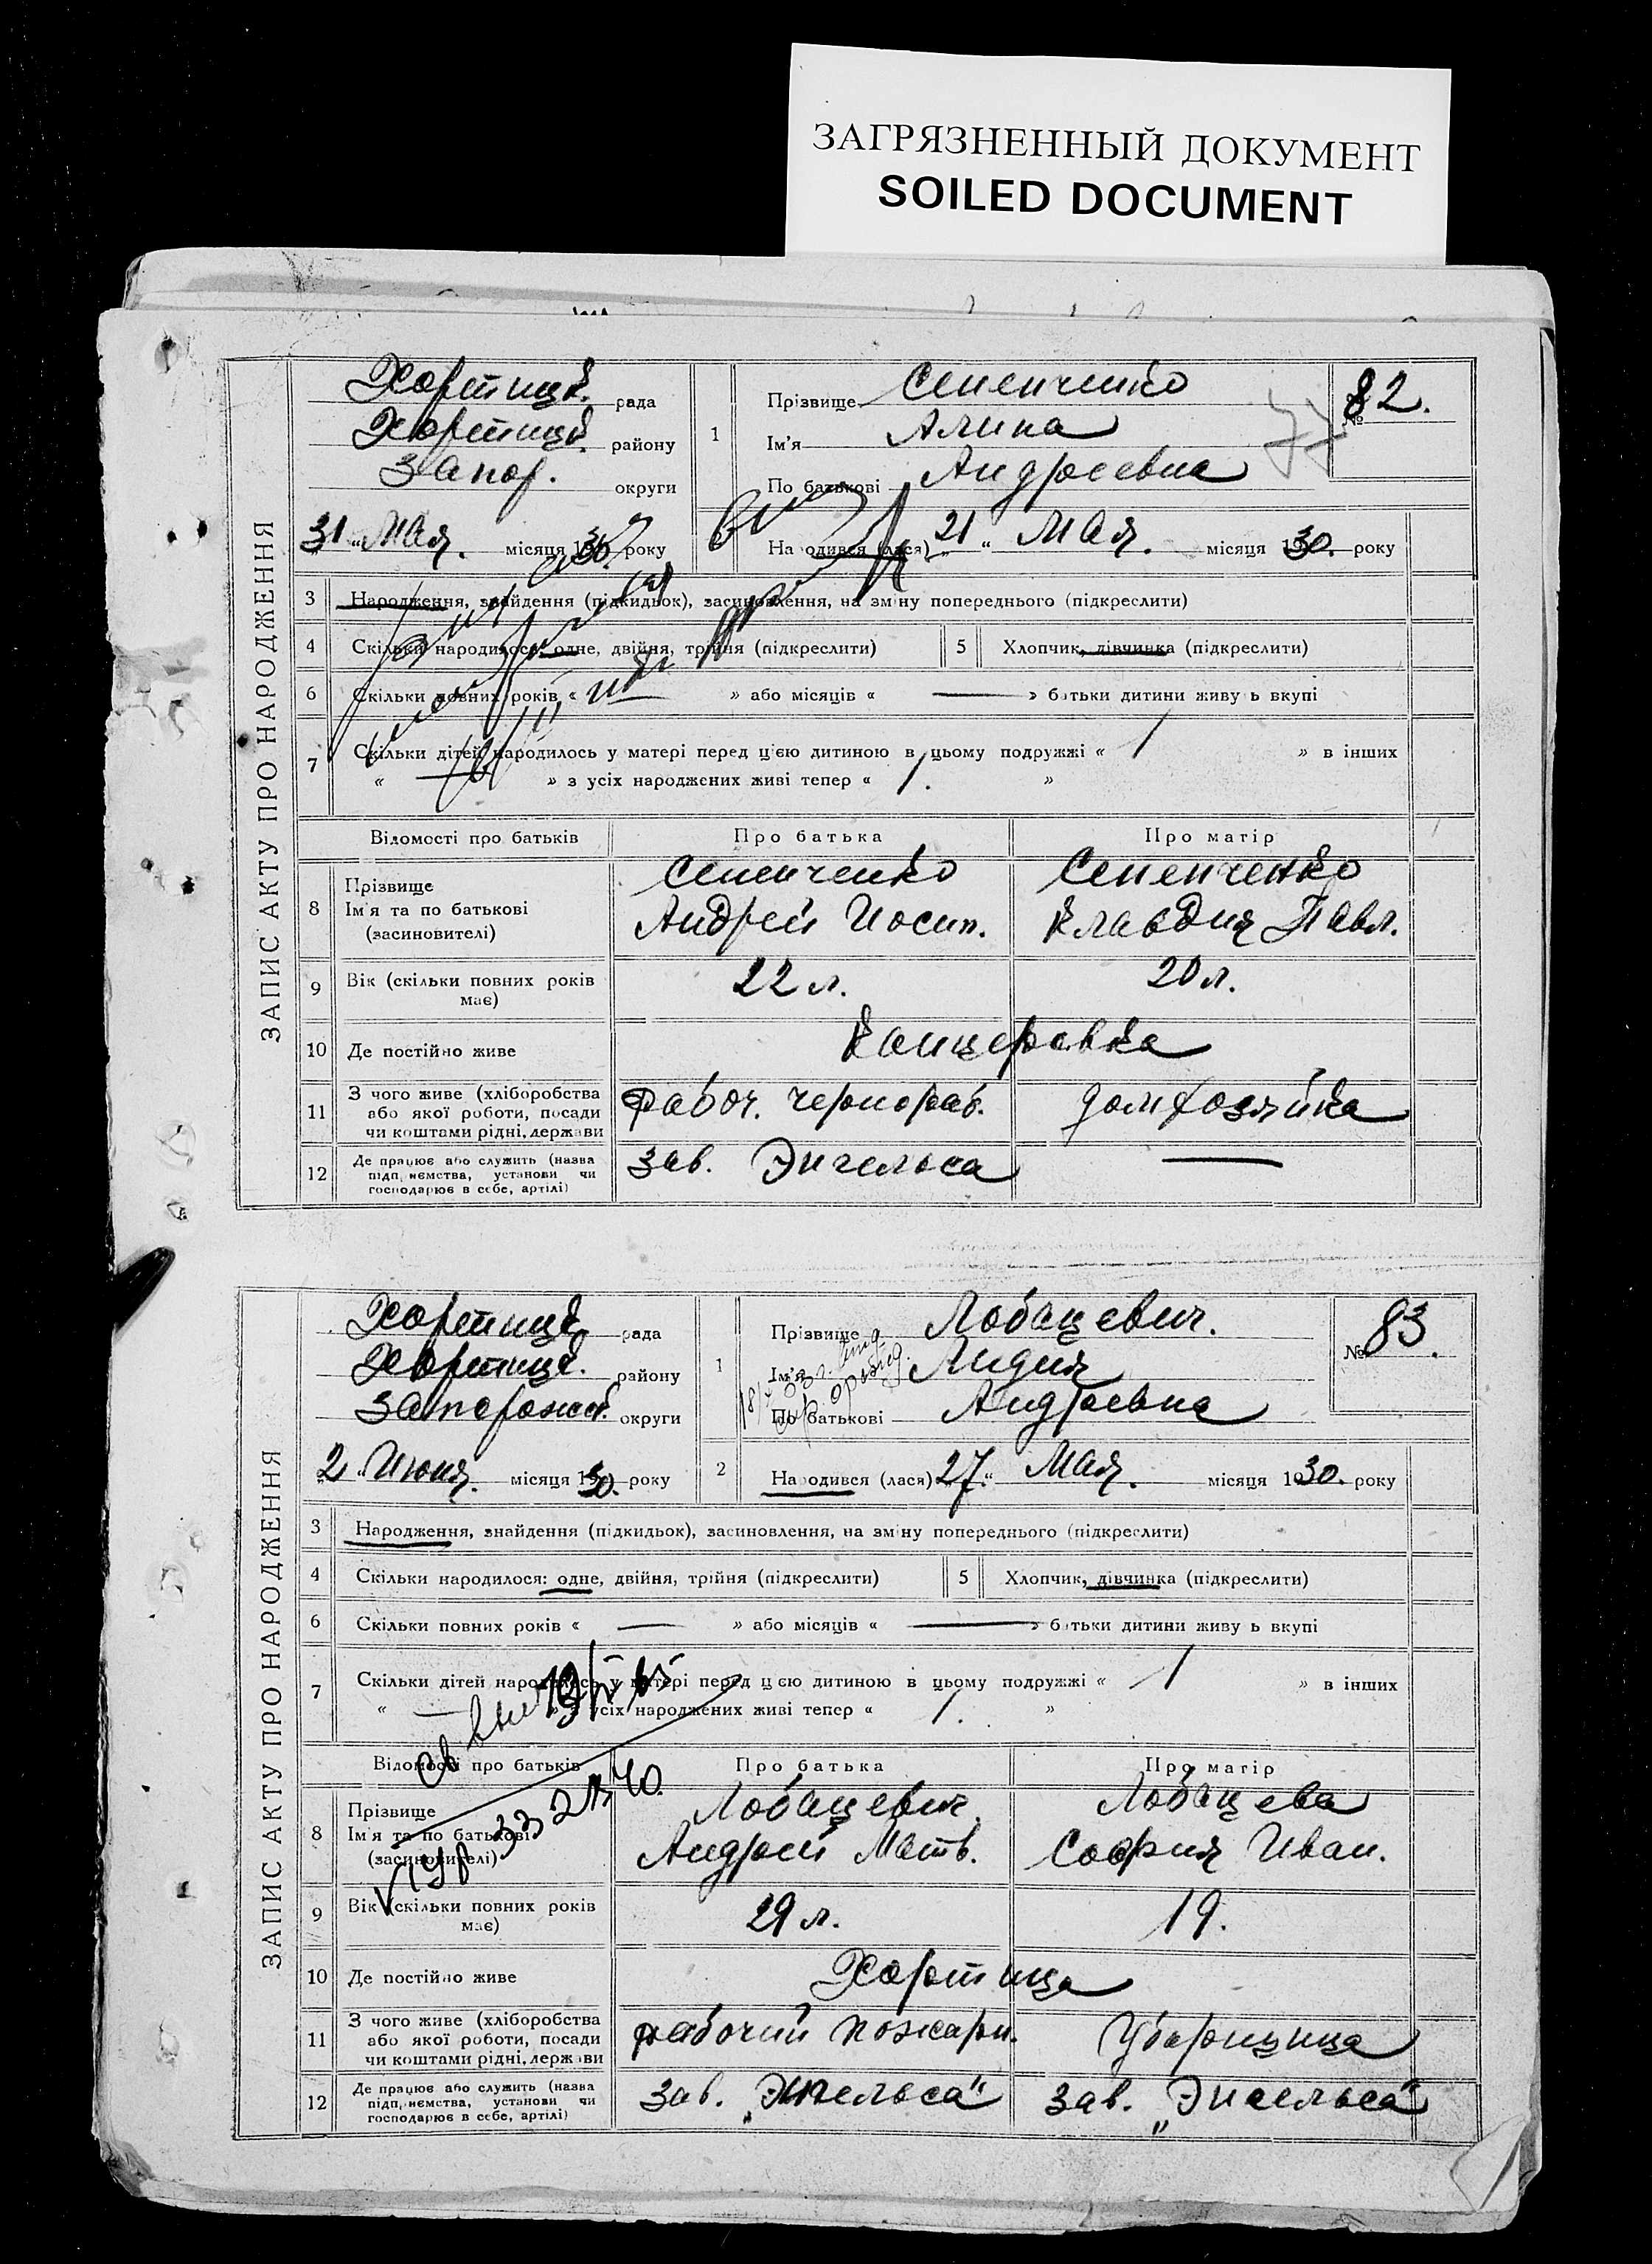 ЗАГРЯЗНЕННЫЙ ДОКУМЕНТ
SOILED DOCUMENT
ЗАПИС АКТУ ПРО НАРОДЖЕННЯ
Хортицк. рада
Хортицк. району
Запор. округи
31 " Мая. місяця 1930. року
1 Прізвище Сепенченко
Ім'я Алина
По батькові Андреевна
№ 82.
77
Народився (лася) „ 21 " Мая. місяця 1930. року
3 Народження, знайдення (підкидьок), засиновлення, на зміну попереднього (підкреслити)
4 Скільки народилося: одне, двійня, трійня (підкреслити)
5 Хлопчик, дівчинка (підкреслити)
6 Скільки повних років « » або місяців « — » батьки дитини живуть вкупі
7 Скільки дітей народилось у матері перед цією дитиною в цьому подружжі « 1 » в інших
« — » з усіх народжених живі тепер « 1. »
Відомості про батьків Про батька Про матір
8 Прізвище
Ім'я та по батькові
(засиновителі)
Сепенченко
Андрей Иосип.
Сепенченко
Клавдия Павл.
9 Вік (скільки повних років має) 22 л. 20 л.
10 Де постійно живе Канцеровка
11 З чого живе (хліборобства
або якої роботи, посади
чи коштами рідні, держави
Рабоч. чернораб. домхозяйка
12 Де працює або служить (назва
підприємства, установи чи
господарює в себе, артілі)
зав. Энгельса —
ЗАПИС АКТУ ПРО НАРОДЖЕННЯ
Хортицк. рада
Хортицк. району
Запорожск. округи
„ 2 " Июня. місяця 1930. року
1 Прізвище Лобацевич.
Ім'я Лидия
По батькові Андреевна
№ 83.
2 Народився (лася) „ 27. " Мая. місяця 1930. року
3 Народження, знайдення (підкидьок), засиновлення, на зміну попереднього (підкреслити)
4 Скільки народилося: одне, двійня, трійня (підкреслити)
5 Хлопчик, дівчинка (підкреслити)
6 Скільки повних років « — » або місяців « — » батьки дитини живуть вкупі
7 Скільки дітей народилось у матері перед цією дитиною в цьому подружжі « 1 » в інших
« — » з усіх народжених живі тепер « 1. »
Відомості про батьків Про батька Про матір
8 Прізвище
Ім'я та по батькові
(засиновителі)
Лобацевич.
Андрей Матв.
Лобацева
София Иван.
9 Вік (скільки повних років має) 29 л. 19.
10 Де постійно живе Хортица
11 З чого живе (хліборобства
або якої роботи, посади
чи коштами рідні, держави
рабочий пожарн. Уборщица
12 Де працює або служить (назва
підприємства, установи чи
господарює в себе, артілі)
зав. „Энгельса" зав. „Энгельса"